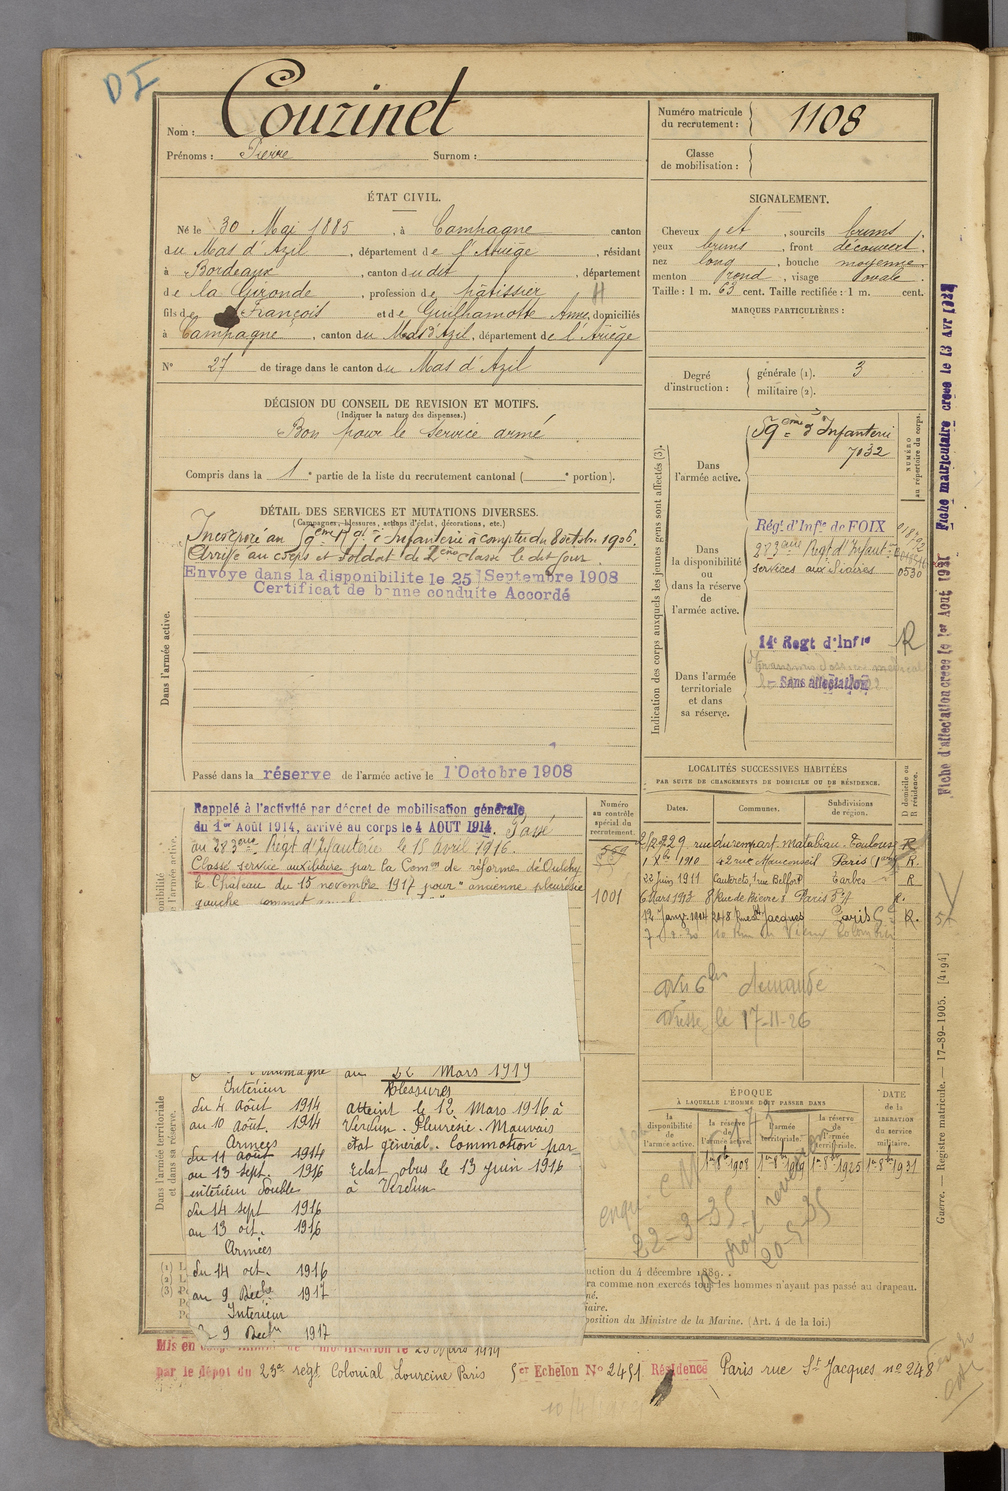 DI
Nom : Couzinet
Prénoms : Pierre Surnom :
Numéro matricule du recrutement : 1108
Classe de mobilisation :
ÉTAT CIVIL.
Né le 30 Mai 1885, à Campagne canton
du Mas d'Azil, département de l'Ariège, résidant
à Bordeaux, canton du dit, département
de la Gironde, profession de pâtissier H
fils de François et de Guilhamotte Anne, domiciliés
à Campagne, canton du Mas d'Azil, département de l'Ariège
N° 27 de tirage dans le canton du Mas d'Azil
SIGNALEMENT.
Cheveux et, sourcils bruns
yeux bruns, front découvert
nez long, bouche moyenne
menton rond, visage ovale
Taille : 1 m. 63 cent. Taille rectifiée : 1 m. cent.
MARQUES PARTICULIÈRES :
Degré d'instruction : générale (1). 3
militaire (2).
DÉCISION DU CONSEIL DE REVISION ET MOTIFS.
(Indiquer la nature des dispenses.)
Bon pour le service armé
Compris dans la 1e partie de la liste du recrutement cantonal ( e portion).
DÉTAIL DES SERVICES ET MUTATIONS DIVERSES.
(Campagnes, blessures, actions d'éclat, décorations, etc.)
Incorporé au 59ème Rgt d'Infanterie à compter du 8 octobre 1906.
Arrivé au corps et soldat de 2ème classe le dit jour.
Envoyé dans la disponibilité le 25 Septembre 1908
Certificat de bonne conduite Accordé
Dans l'armée active.
Passé dans la réserve de l'armée active le 1 Octobre 1908
Rappelé à l'activité par décret de mobilisation générale
du 1er Août 1914, arrivé au corps le 4 AOUT 1914. Passé
au 283ème Régt d'Infanterie le 15 avril 1916.
Classé service auxiliaire par la Comon de réforme d'Oulchy
le Château du 15 novembre 1917 pour "ancienne pleurésie
gauche
au 22 Mars 1919
Intérieur
du 4 Août 1914
au 10 Août. 1914
Armées
du 11 Août 1914
au 13 sept. 1916
intérieur double
du 14 sept 1916
au 13 oct. 1916
Armées
du 14 oct. 1916
au 9 Décbe 1917
Intérieur
9 Décbre 1917
Blessures
Atteint le 12 Mars 1916 à
Verdun. Pleurésie. Mauvais
état général. Commotion par
éclat obus le 13 juin 1916
à Verdun
Dans l'armée territoriale et dans sa réserve.
Indication des corps auxquels les jeunes gens sont affectés (3).
NUMÉRO au répertoire du corps.
Dans l'armée active.
59ème d'Infanterie
7032
Dans la disponibilité ou dans la réserve de l'armée active.
Régt d'Infie de FOIX
283ème Régt d'Infant
services auxiliaires 0530
Dans l'armée territoriale et dans sa réserve.
14e Regt d'Infie R
Sans affectation
LOCALITÉS SUCCESSIVES HABITÉES
PAR SUITE DE CHANGEMENTS DE DOMICILE OU DE RÉSIDENCE.
Numéro au contrôle spécial du recrutement.
Dates. Communes. Subdivisions de région. D domicile ou R résidence.
29 rue du rempart Matabiau Toulouse R
1 Xbre 1910 42 rue Mauconseil Paris R.
22 Juin 1911 Cauterets, 1 rue Belfort Tarbes R
1001 6 Mars 1913 8 Rue de Bièvres Paris R.
12 Janv. 1914 248 Rue St Jacques Paris R.
demandé
adresse le 17-11-26
ÉPOQUE
À LAQUELLE L'HOMME DOIT PASSER DANS
la disponibilité de l'armée active.
la réserve de l'armée active.
l'armée territoriale.
la réserve de l'armée territoriale.
DATE de la LIBÉRATION du service militaire.
1er 8bre 1908 1er 8bre 1919 1er 8bre 1925 1er 8bre 1931
22-3-35
20-5-35
nction du 4 décembre 1889.
ra comme non exercés tous les hommes n'ayant pas passé au drapeau.
né.
iaire.
position du Ministre de la Marine. (Art. 4 de la loi.)
Mis en
par le dépôt du 23e régt Colonial Lourcine Paris 5er Echelon N° 2451 Résidence Paris rue St Jacques no 248
Guerre. — Registre matricule. — 17-89-1905. [4194]
Fiche d'affectation créée le 1er Aout 1921 Fiche matriculaire créée le 13 Avr